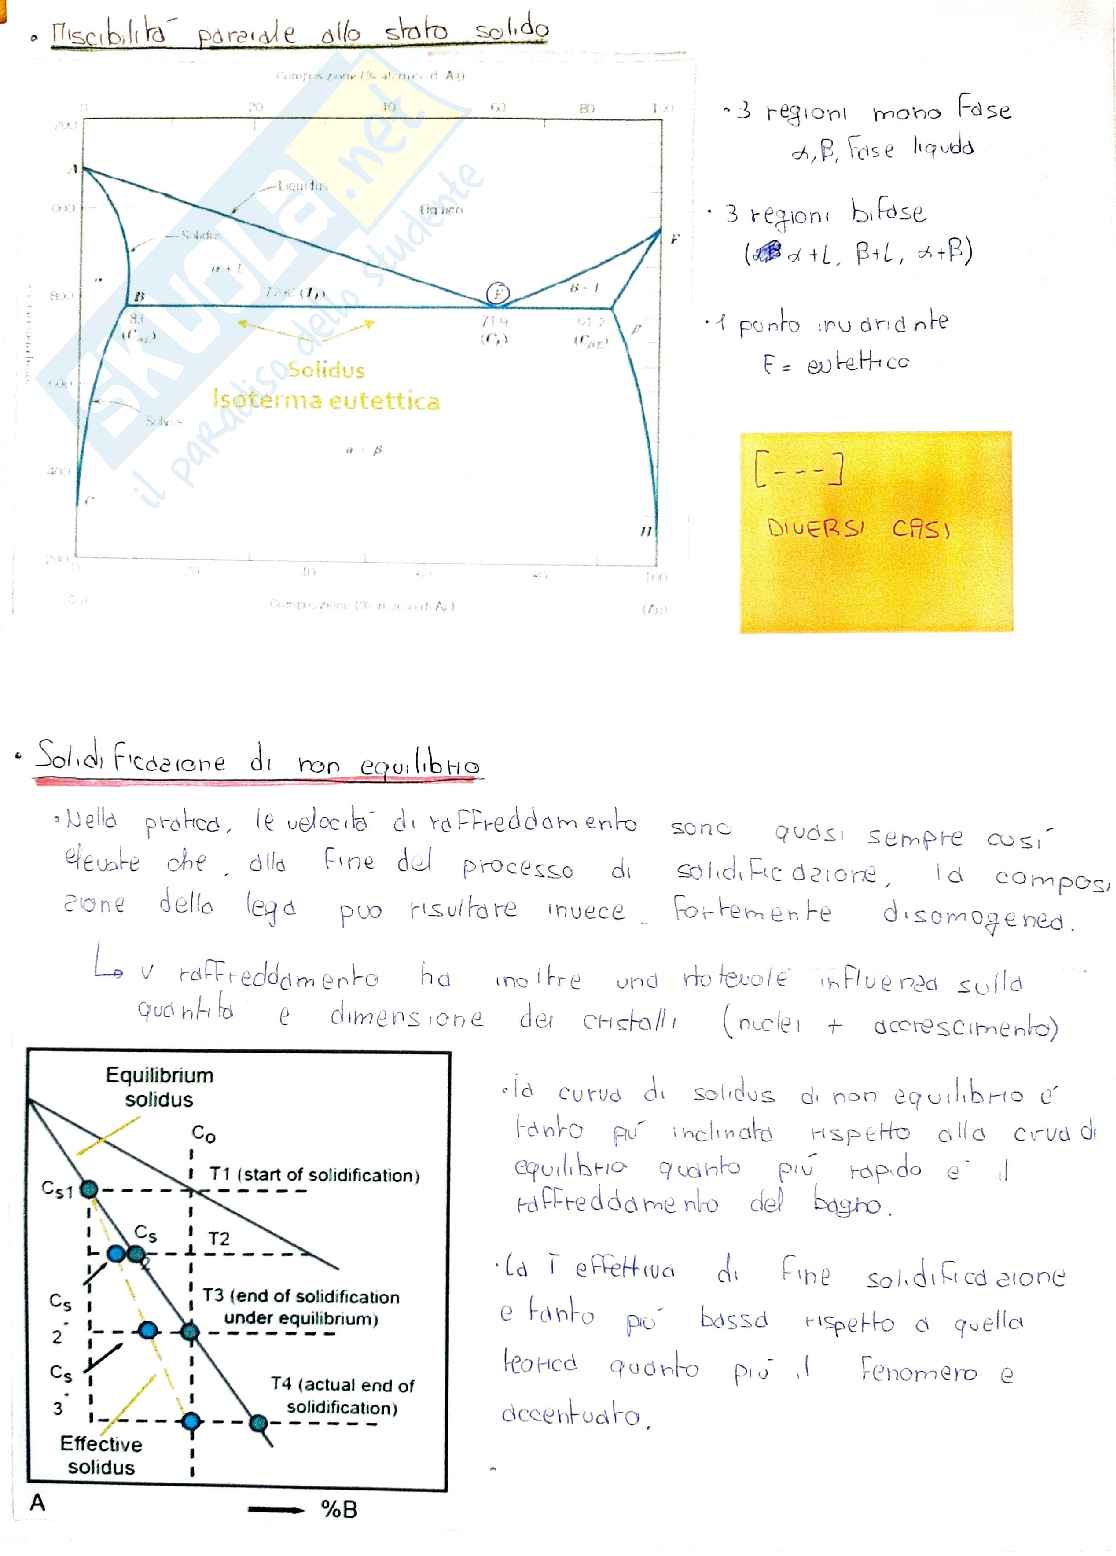 • Miscibilità parziale allo stato solido
Composizione (% atomica di Ag)
0 20 40 60 80 100
A
Liquidus
Liquido
Solidus
α + L
α
F
β + L
E
800
B
(I_E)
71.9
(C_E)
(C_αE)
(C_βE)
Solidus
Isoterma eutettica
Solvus
α + β
400
C
H
200
20 40 60 80 100
Composizione (% in massa di Ag)
(Ag)
SKUOLA.net
il paradiso dello studente
• 3 regioni mono fase
α, β, fase liquida
• 3 regioni bifase
( α+L, β+L, α+β)
• 1 punto invariante
E = eutettico
[---]
DIVERSI CASI
• Solidificazione di non equilibrio
• Nella pratica, le velocità di raffreddamento sono quasi sempre così
elevate che, alla fine del processo di solidificazione, la composi
zione della lega può risultare invece fortemente disomogenea.
↳ v raffreddamento ha inoltre una notevole influenza sulla
quantità e dimensione dei cristalli (nuclei + accrescimento)
Equilibrium
solidus
Co
T1 (start of solidification)
Cs1
Cs
2
T2
Cs
2'
T3 (end of solidification
under equilibrium)
Cs
3'
T4 (actual end of
solidification)
Effective
solidus
A
%B
• la curva di solidus di non equilibrio è
tanto più inclinata rispetto alla crva di
equilibrio quanto più rapido è il
raffreddamento del bagno.
• La T effettiva di fine solidificazione
e tanto più bassa rispetto a quella
teorica quanto più il fenomeno e
accentuato.